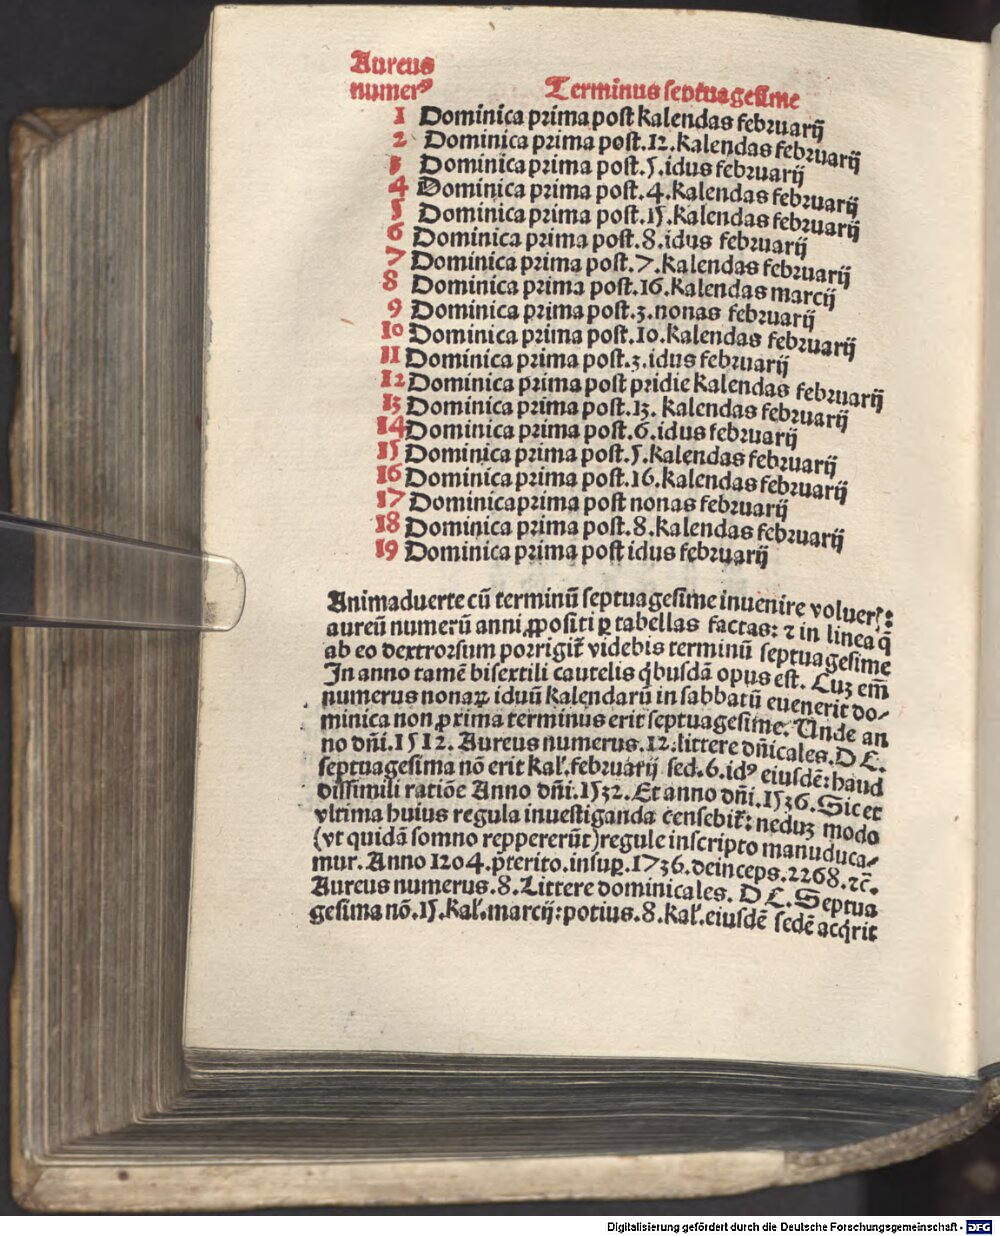 Aureus
numerꝰ Terminus septuagesime
1 Dominica prima post kalendas februarij
2 Dominica prima post.12.kalendas februarij
3 Dominica prima post.5.idus februarij
4 Dominica prima post.4.kalendas februarij
5 Dominica prima post.15.kalendas februarij
6 Dominica prima post.8.idus februarij
7 Dominica prima post.7.kalendas februarij
8 Dominica prima post.16.kalendas marcij
9 Dominica prima post.3.nonas februarij
10 Dominica prima post.10.kalendas februarij
11 Dominica prima post.3.idus februarij
12 Dominica prima post pridie kalendas februarij
13 Dominica prima post.13. kalendas februarij
14 Dominica prima post.6.idus februarij
15 Dominica prima post.5.kalendas februarij
16 Dominica prima post.16.kalendas februarij
17 Dominica prima post nonas februarij
18 Dominica prima post.8.kalendas februarij
19 Dominica prima post idus februarij
Animaduerte cū terminū septuagesime inuenire volueris:
aureū numerū anni ꝓpositi ꝑ tabellas factas: ⁊ in linea q̄
ab eo dextrorsum porrigit᷑ videbis terminū septuagesime
In anno tamē bisextili cautelis q̇busdā opus est. Cuʒ em̄
numerus nonaꝝ iduū kalendarū in sabbatū euenerit do-
minica non ꝓxima terminus erit septuagesime. Unde an
no dn̄i.1512. Aureus numerus.12.littere dn̄icales.D C.
septuagesima nō erit kal̓.februarij sed.6.idꝰ eiusdē: haud
dissimili ratiōe Anno dn̄i.1532. Et anno dn̄i.1536. Sic et
vltima huius regula inuestiganda censebit᷑: neduʒ modo
(vt quidā somno reppererūt) regule inscripto manuduca-
mur. Anno 1204. p̄terito. insuꝑ.1736. deinceps.2268.⁊c̄.
Aureus numerus.8. Littere dominicales. D C. Septua
gesima nō.15.kal̓.marcij: potius.8.kal̓.eiusdē sedē acq̇rit
Digitalisierung gefördert durch die Deutsche Forschungsgemeinschaft - DFG